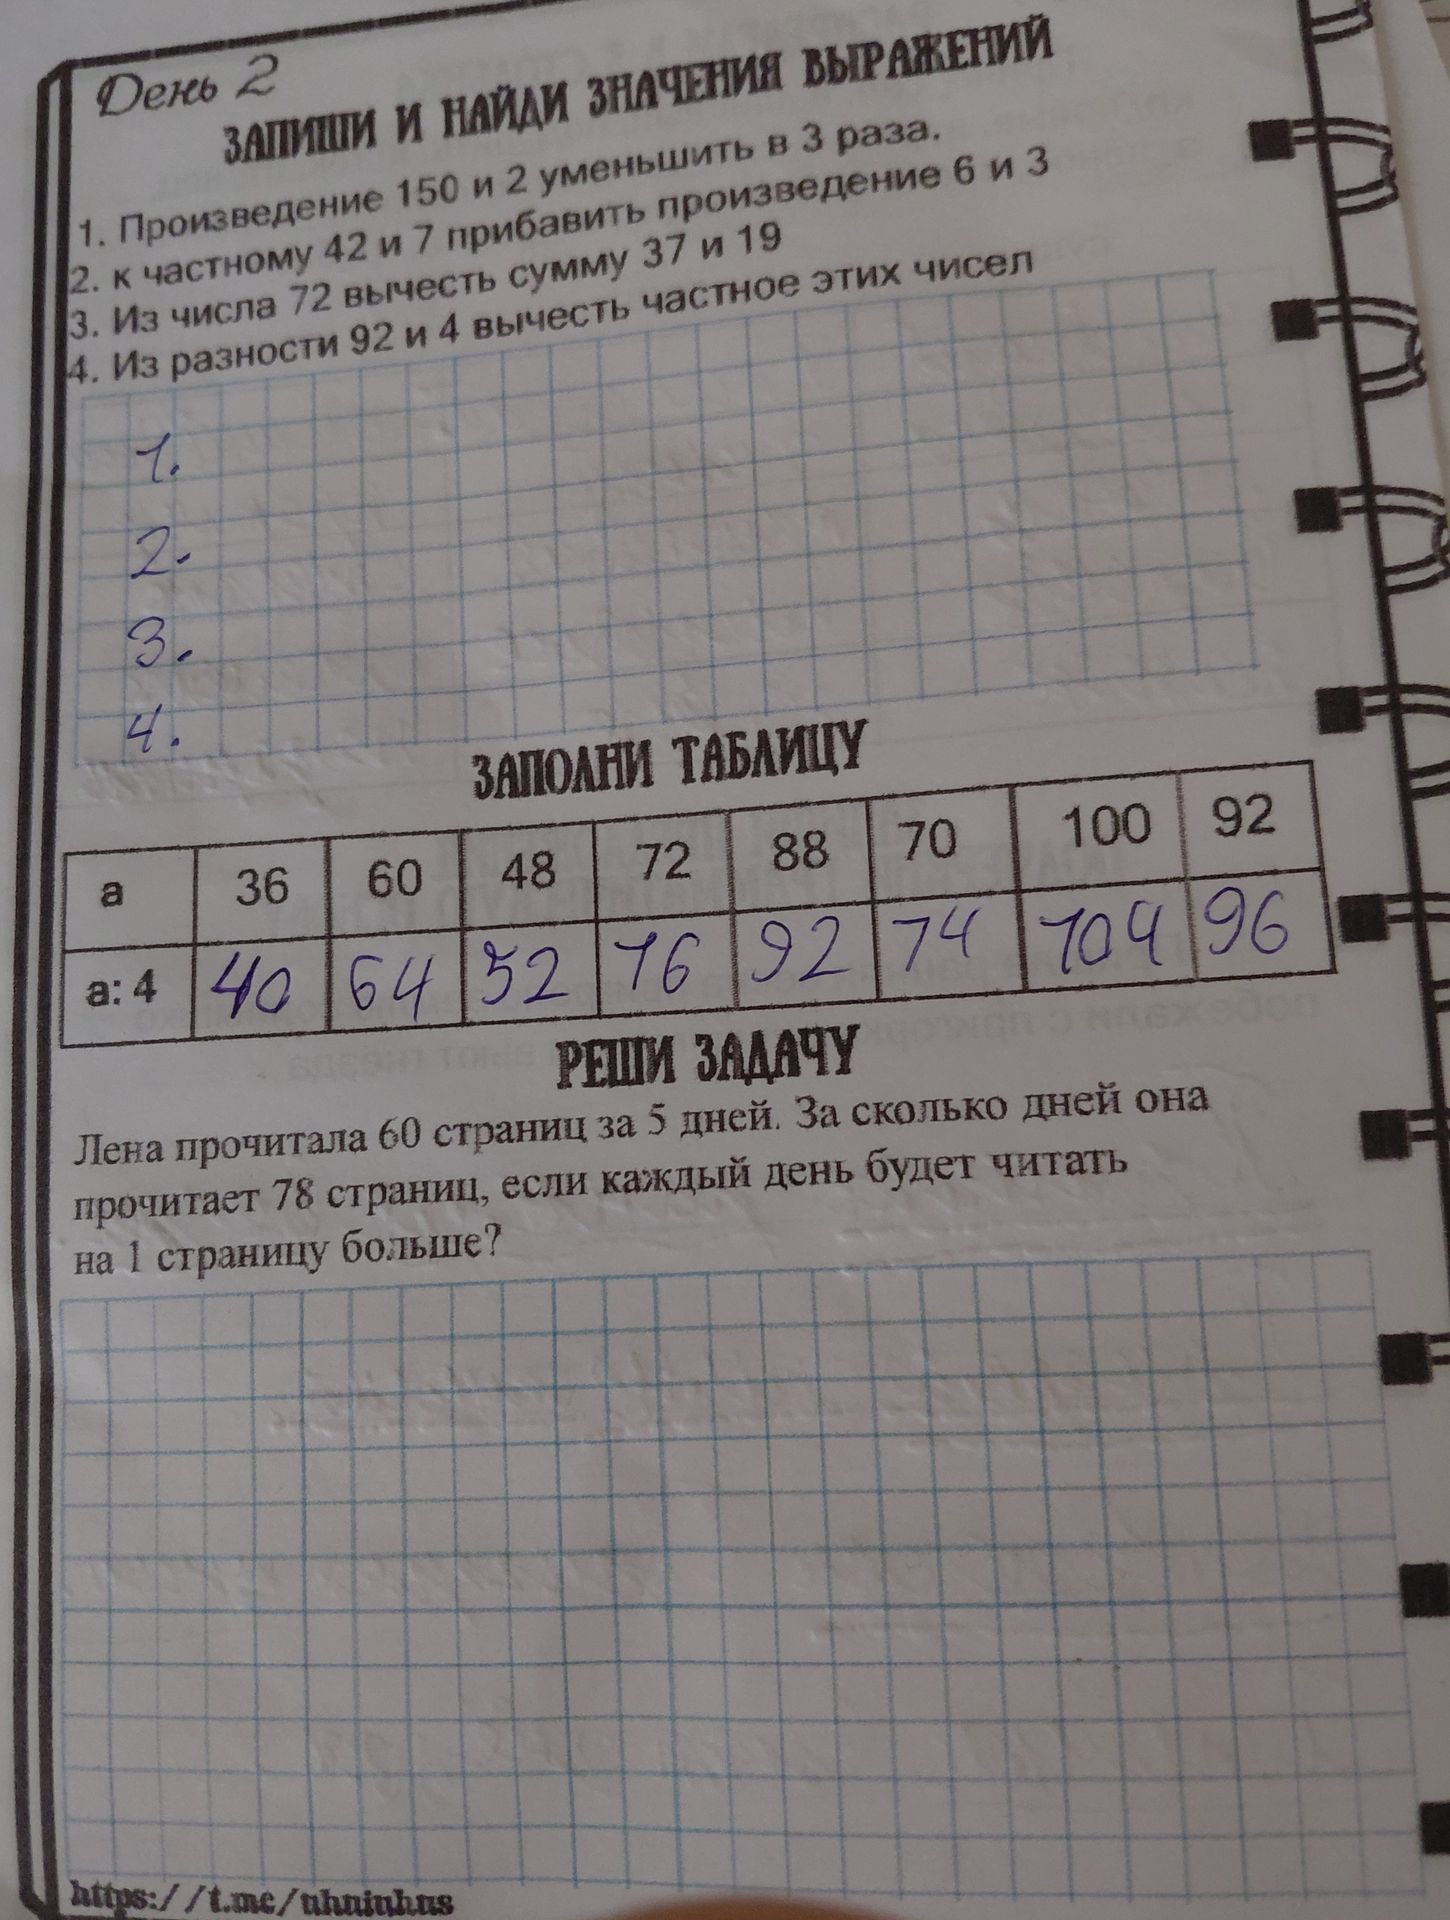 День 2
ЗАПИШИ И НАЙДИ ЗНАЧЕНИЯ ВЫРАЖЕНИЙ
1. Произведение 150 и 2 уменьшить в 3 раза.
2. к частному 42 и 7 прибавить произведение 6 и 3
3. Из числа 72 вычесть сумму 37 и 19
4. Из разности 92 и 4 вычесть частное этих чисел
1.
2.
3.
4.
ЗАПОЛНИ ТАБЛИЦУ
а 36 60 48 72 88 70 100 92
а: 4 40 64 52 76 92 74 104 96
РЕШИ ЗАДАЧУ
Лена прочитала 60 страниц за 5 дней. За сколько дней она
прочитает 78 страниц, если каждый день будет читать
на 1 страницу больше?
https://t.me/nhninhns